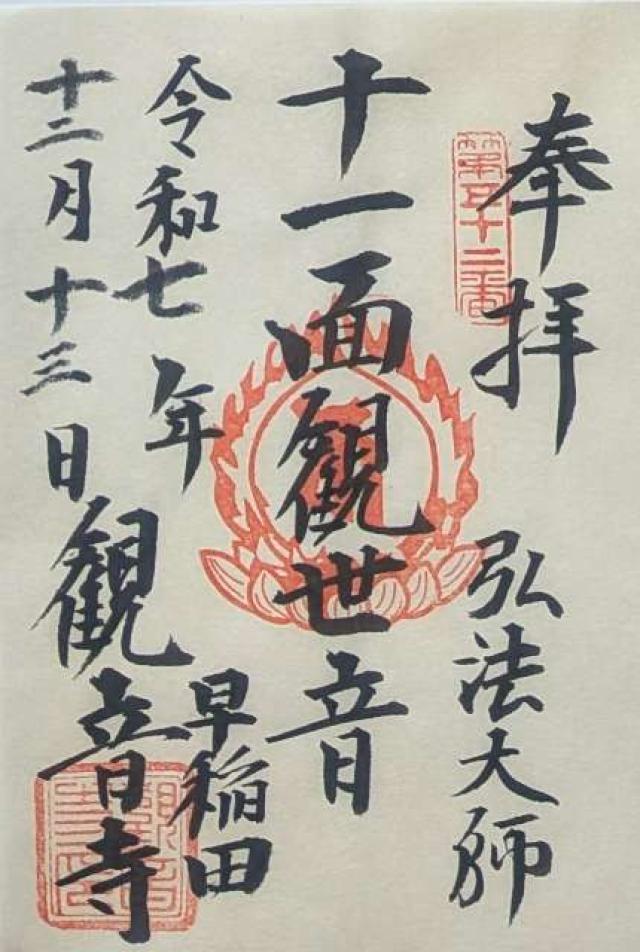 奉拝
第五十二番
弘法大師
十一面觀世音
令和七年
早稲田
十二月十三日
觀音寺